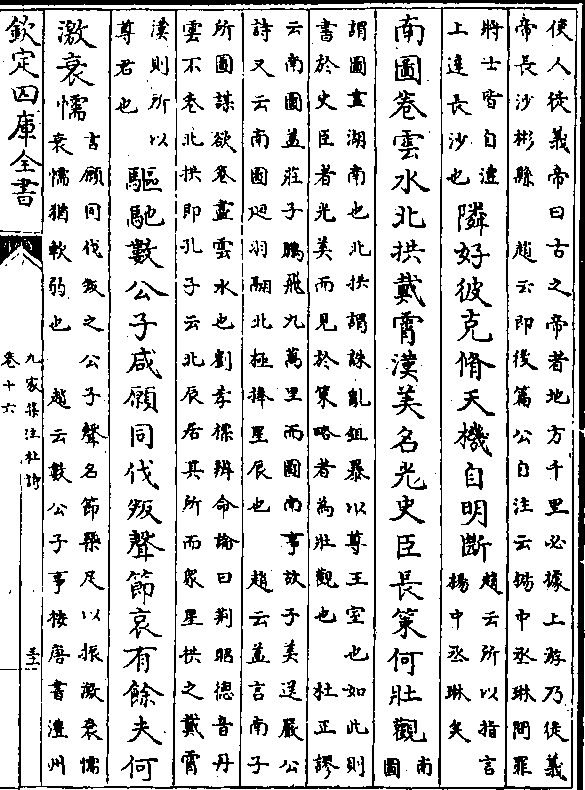 使人徙義帝曰古之帝者地方千里必據上游乃徙義
帝長沙郴縣　趙云即後篇公自注云楊中丞琳問罪
將士皆自遠
上達長沙也
隣好彼克脩天機自明斷
趙云所以指言
楊中丞琳矣
南圖卷雲水北拱戴霄漢美名光史臣長策何壯觀
南
圖
謂圖畫湖南也北拱謂誅亂鉏暴以尊王室也如此則
書於史臣者光美而見於策略者為壯觀也　杜正謬
云南圖蓋莊子鵬飛九萬里而圖南事故子美送嚴公
詩又云南圖迴羽翮北極捧星辰也　趙云蓋言南子
所圖謀欲卷盡雲水也劉孝標辨命論曰荆昭德音丹
雲不卷北拱即孔子云北辰居其所而衆星拱之戴霄
漢則所以
尊君也
驅馳數公子咸願同伐叛聲節哀有餘夫何
激衰懦
言願同伐叛之公子聲名節槩足以振激衰懦
衰懦猶軟弱也　趙云數公子事按唐書澧州
欽定四庫全書
九家集注杜詩
卷十六